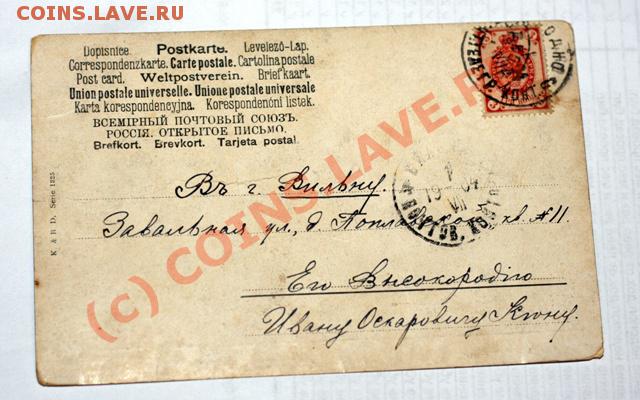 COINS.LAVE.RU
Dopisnice Postkarte. Levelező-Lap.
Correspondenzkarte. Carte postale. Cartolina postale
Post card. Weltpostverein. Briefkaart.
Union postale universelle. Unione postale universale
Karta korespondencyjna. Korespondenční lístek.
ВСЕМІРНЫЙ ПОЧТОВЫЙ СОЮЗЪ.
РОССІЯ. ОТКРЫТОЕ ПИСЬМО.
Brefkort. Brevkort. Tarjeta postal.
K. & B. D. Serie 1325
Въ г. Вильну.
Завальная ул., д. Поплавской, кв. №11.
Его Высокородію
Ивану Оскаровичу
(c) COINS.LAVE.RU
COINS.LAVE.RU